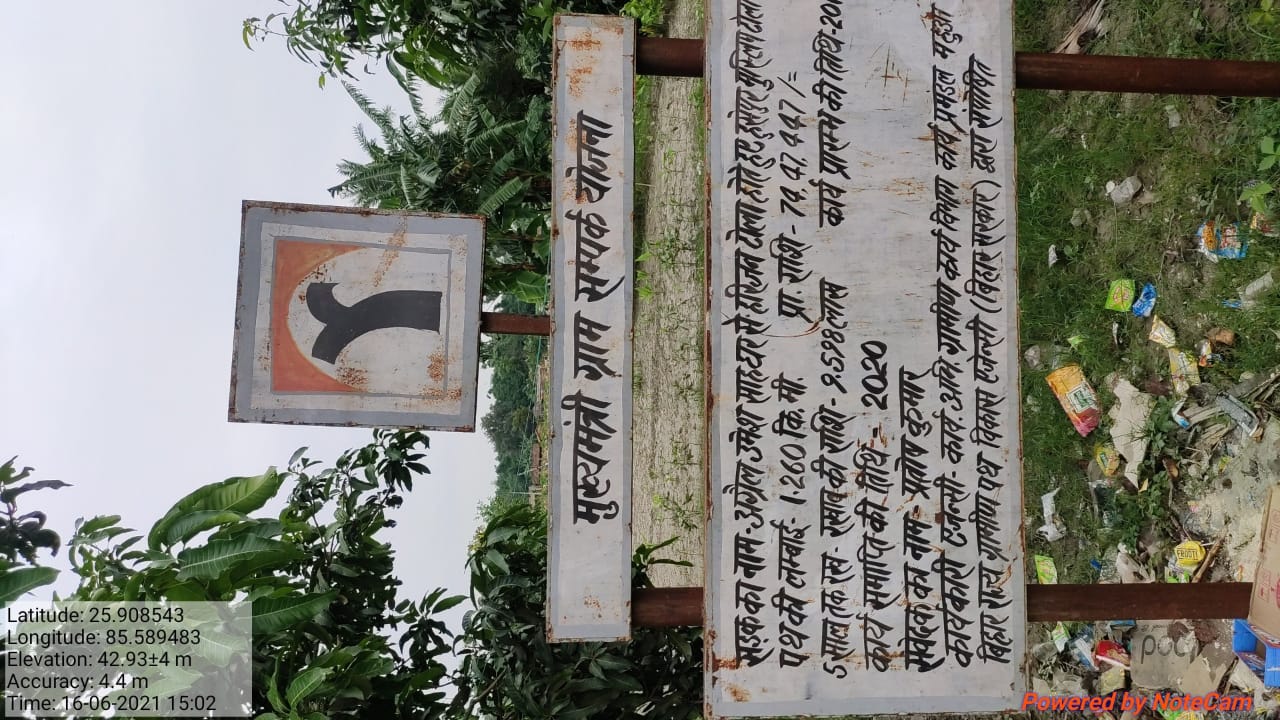 मुख्यमंत्री ग्राम सम्पर्क योजना
सड़क का नाम:- उमेश साह घर से टोला होते हुए हुसेपुर मुस्लिम टोला
पथ की लम्बाई:- 1.260 कि.मी. प्रा. राशि - 74,47,447/=
5 साल तक रख - रखाव की राशि - 9.598 लाख कार्य प्रारम्भ की तिथि-20
कार्य समाप्ति की तिथि:- 2020
संवेदक का नाम:- प्रमोद कुमार
कार्यकारी एजेन्सी:- कार्य. अभि. ग्रामीण कार्य विभाग कार्य प्रमंडल महुआ
बिहार राज्य ग्रामीण पथ विकास एजेन्सी (बिहार सरकार) द्वारा संपोषित
FROOTI
Latitude: 25.908543
Longitude: 85.589483
Elevation: 42.93±4 m
Accuracy: 4.4 m
Time: 16-06-2021 15:02
Powered by NoteCam